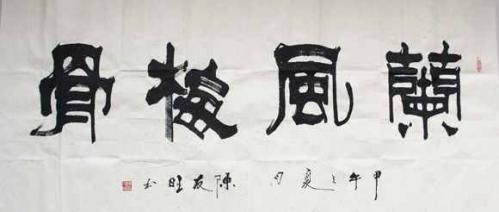 蘭風梅骨
甲午之夏月 陳友旺書